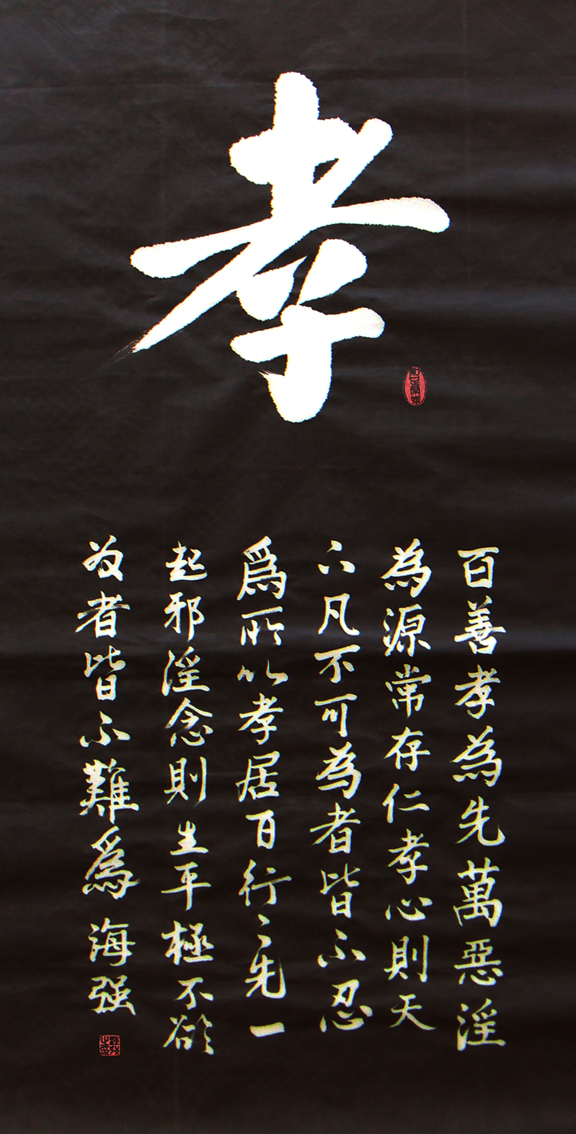 孝
百善孝為先萬惡淫
為源常存仁孝心則天
下凡不可為者皆不忍
爲所以孝居百行之先一
起邪淫念則生平極不欲
为者皆不難爲海强